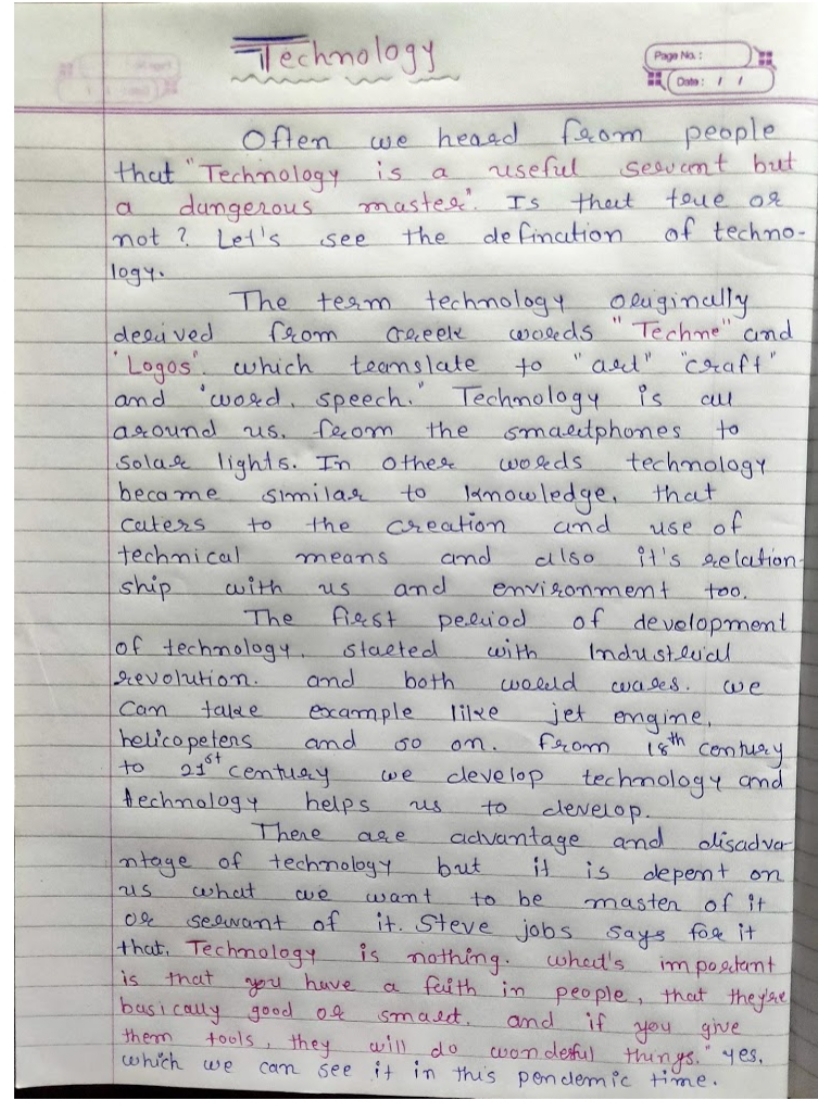 Technology
Page No.:
Date: / /
Often we heard from people
that "Technology is a useful servant but
a dangerous master". Is that true or
not? Let's see the defination of techno-
logy.
The term technology originally
derived from Greek words "Techne" and
"Logos". which translate to "art" "craft"
and "word, speech." Technology is all
around us. from the smartphones to
solar lights. In other words technology
become similar to knowledge, that
caters to the creation and use of
technical means and also it's relation-
ship with us and environment too.
The first period of development
of technology. started with Industrial
revolution. and both world wares. we
can take example like jet engine,
helicopeters and so on. From 18th century
to 21st century we develop technology and
technology helps us to develop.
There are advantage and disadva-
ntage of technology but it is depent on
us what we want to be master of it
or servant of it. Steve jobs says for it
that, Technology is nothing. what's important
is that you have a faith in people, that they're
basically good or smart. and if you give
them tools, they will do wondeful things." yes,
which we can see it in this pendemic time.